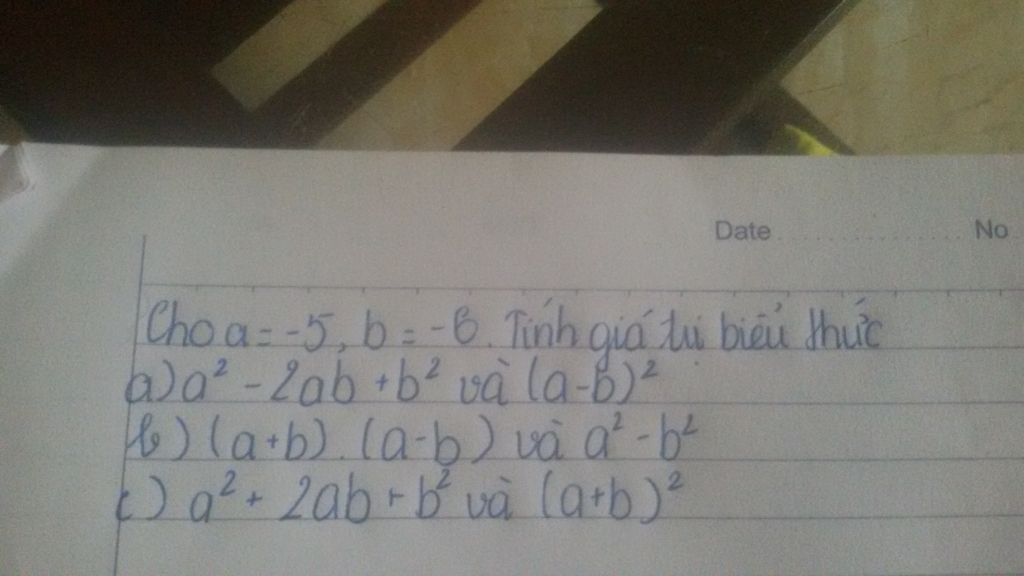 Date ................... No
Cho a = -5, b = -6. Tính giá trị biểu thức
a) a² - 2ab + b² và (a-b)²
b) (a+b).(a-b) và a² - b²
c) a² + 2ab + b² và (a+b)²